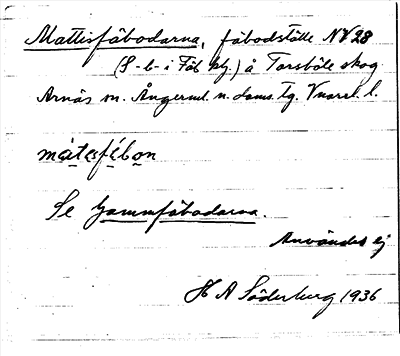 Mattisfäbodarna, fäbodställe NV 28
(S-b-i Fäb bg.) å Torsböle skog
Arnäs sn. Ångerml. n. doms. tg. Vnorrl. l.
mátesfébon
Se Gammfäbodarna.
Användes ej
H A Söderberg 1936